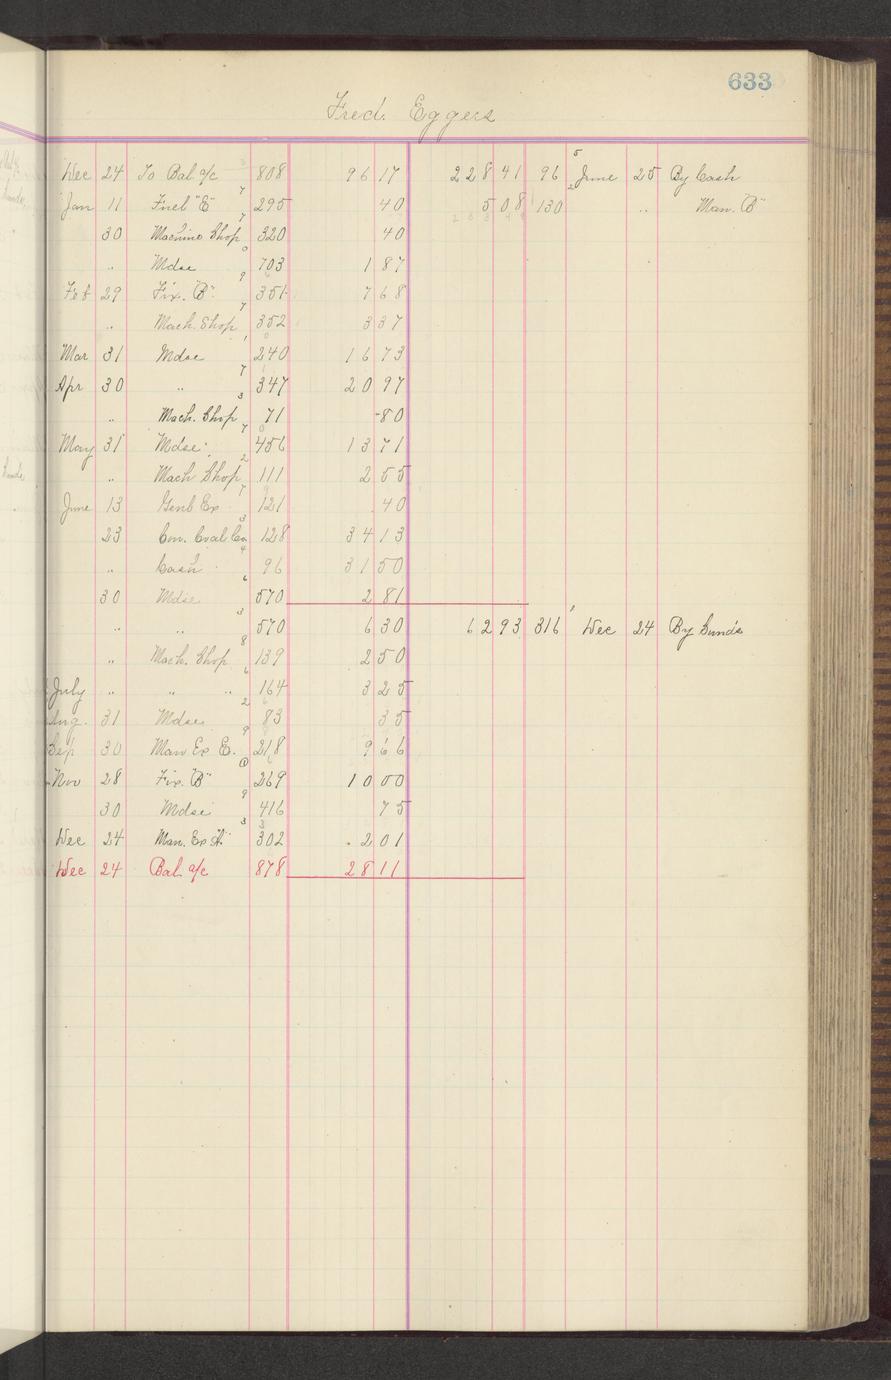 633
Fred. Eggers
Dec 24 To Bal a/c 808 96 17 228 41 96 June 25 By Cash
Jan 11 Fuel "E" 295 40 5 08 130 " Man. "B"
30 Machine Shop 320 40
" Mdse 703 1 87
Feb 29 Fix. "B" 351 7 68
" Mach. Shop 352 3 37
Mar 31 Mdse 240 16 73
Apr 30 " 347 20 97
" Mach. Shop 71 80
May 31 Mdse 456 13 71
" Mach Shop 111 2 55
June 13 Genl Ex 121 40
23 Con. Coal Co 128 34 13
" Cash 96 31 50
30 Mdse 570 2 81
" " 570 6 30 62 93 316 Dec 24 By Sunds
" Mach. Shop 139 2 50
July " " " 164 3 25
Aug. 31 Mdse 83 35
Sep 30 Man Ex E. 218 9 66
Nov 28 Fix. "B" 269 10 00
30 Mdse 416 75
Dec 24 Man. Ex "A" 302 2 01
Dec 24 Bal a/c 878 28 11